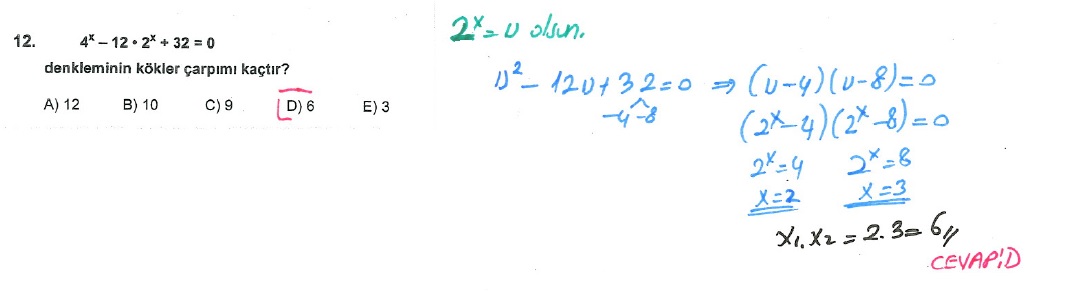 12. 4ˣ – 12 • 2ˣ + 32 = 0
denkleminin kökler çarpımı kaçtır?
A) 12 B) 10 C) 9 D) 6 E) 3
2ˣ = u olsun.
u² – 12u + 32 = 0 ⇒ (u–4)(u–8) = 0
–4 –8
(2ˣ–4)(2ˣ–8) = 0
2ˣ = 4 2ˣ = 8
x = 2 x = 3
x₁.x₂ = 2.3 = 6//
CEVAP: D